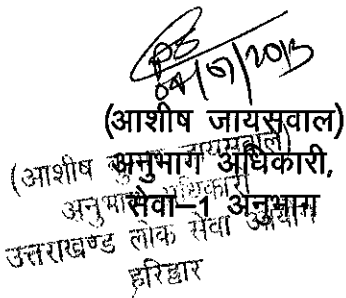 04/9/2013
(आशीष जायसवाल)
अनुभाग अधिकारी,
सेवा-1 अनुभाग
(आशीष कुमार जायसवाल)
अनुभाग अधिकारी
उत्तराखण्ड लोक सेवा आयोग
हरिद्वार